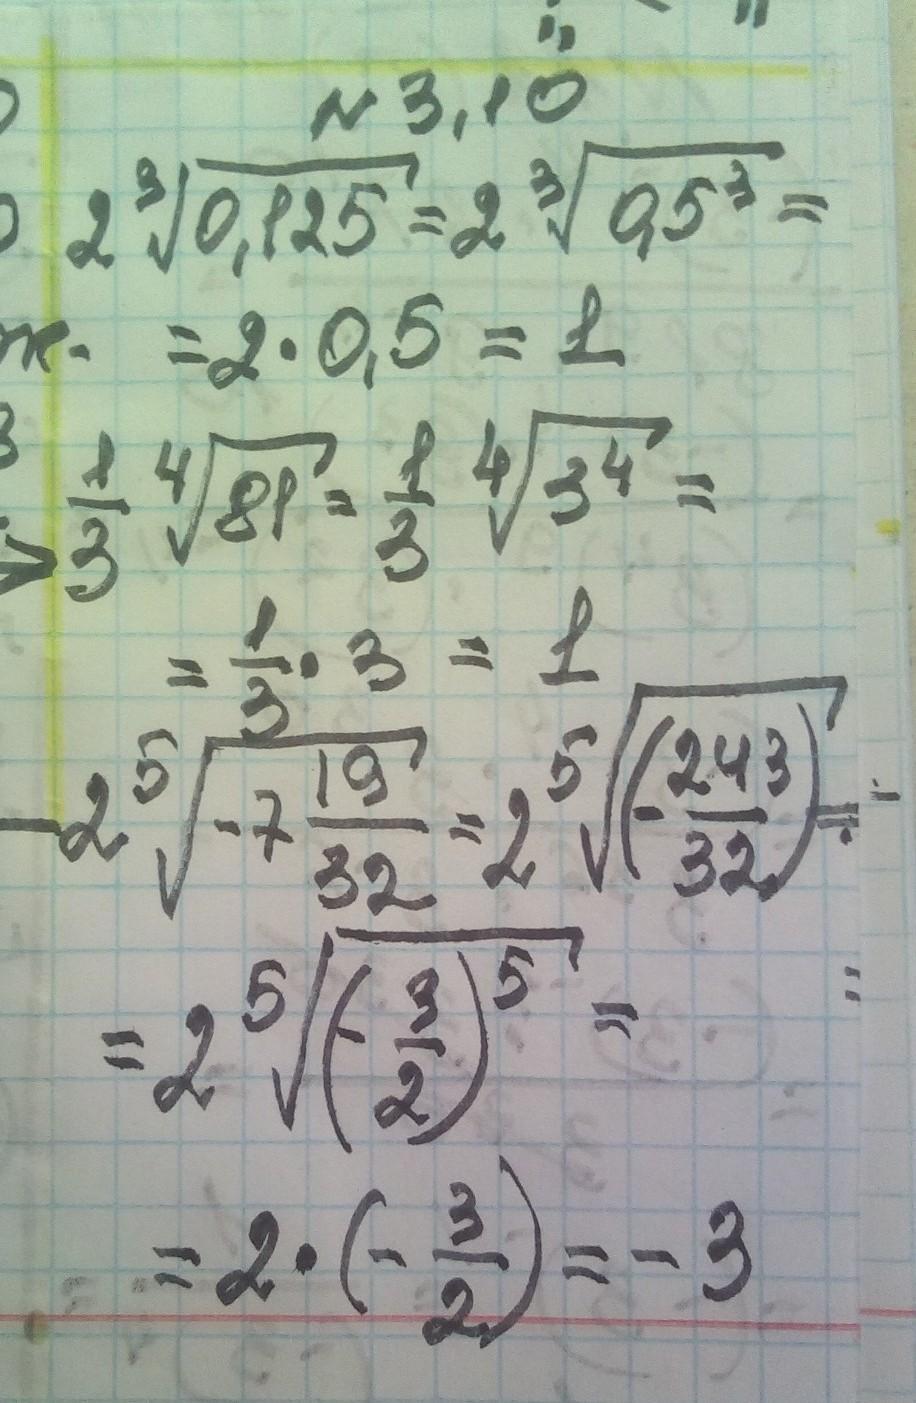 № 3,10
2∛0,125 = 2∛0,5³ =
= 2 · 0,5 = 1
1/3 ∜81 = 1/3 ∜3⁴ =
= 1/3 · 3 = 1
2 ⁵√(-7 19/32) = 2 ⁵√(-243/32) =
= 2 ⁵√(-3/2)⁵ =
= 2 · (-3/2) = -3